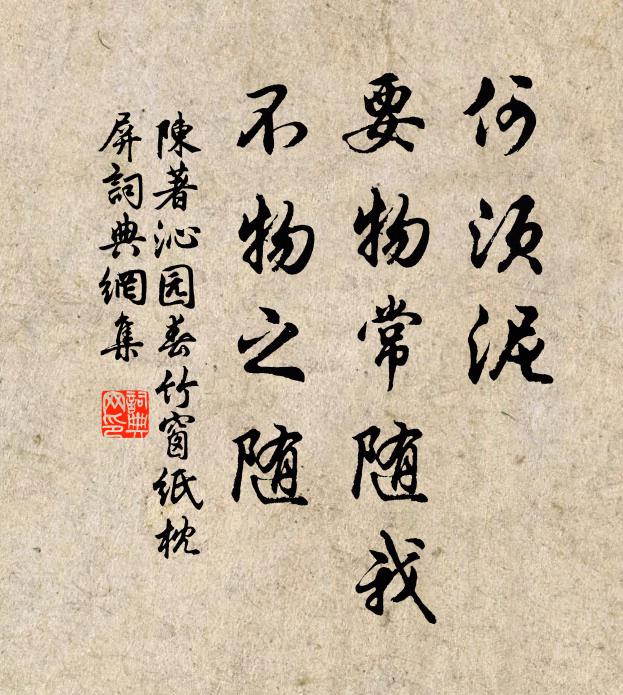 何须泥
要物常随我
不物之随
陳著沁园春竹窗紙枕
屏詞典網集
詞典
网印